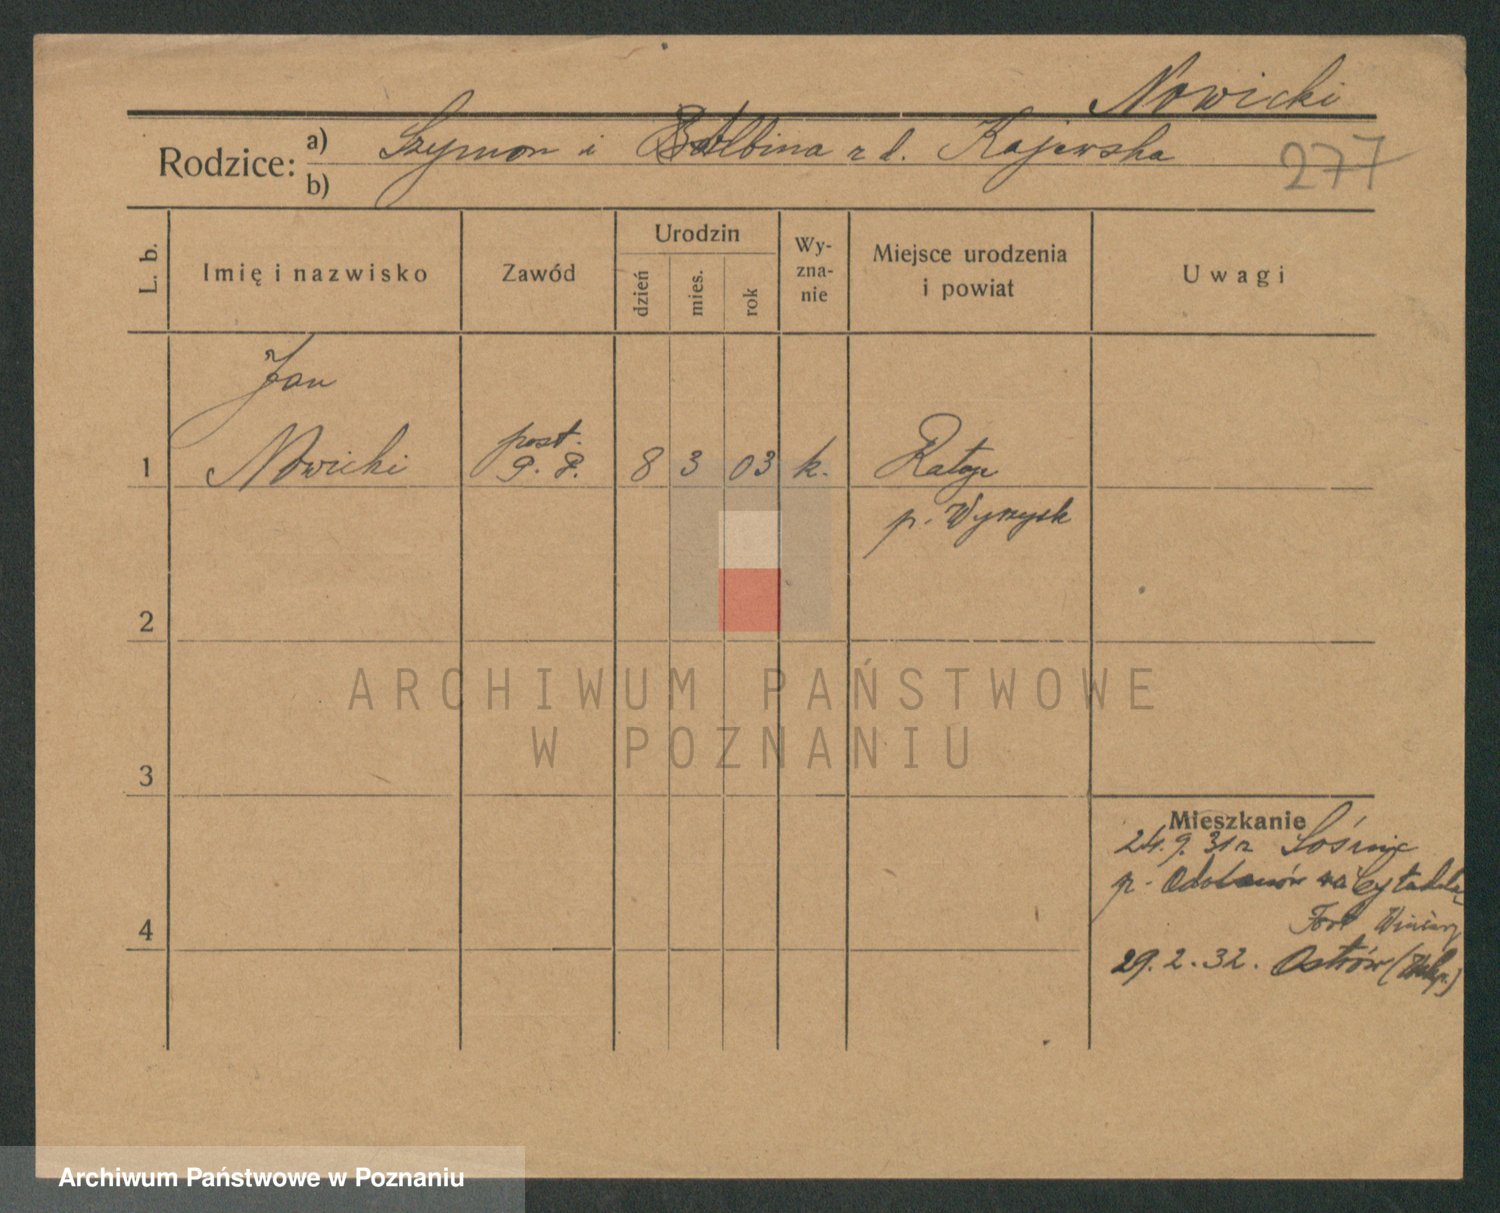 Nowicki
Rodzice: a) Szymon i Balbina z d. Kajewska
b)
277
L. b.
Imię i nazwisko
Zawód
Urodzin
dzień
mies.
rok
Wy-
zna-
nie
Miejsce urodzenia
i powiat
Uwagi
Jan
1 Nowicki post. P. P. 8 3 03 k. Rataje
p. Wyrzysk
2
ARCHIWUM PAŃSTWOWE
W POZNANIU
3
Mieszkanie
24. 9. 31 r Sośnie
p. Odolanów na Cytadelę
Fort Winiary
4
29. 2. 32. Ostrów (Wlkp.)
Archiwum Państwowe w Poznaniu